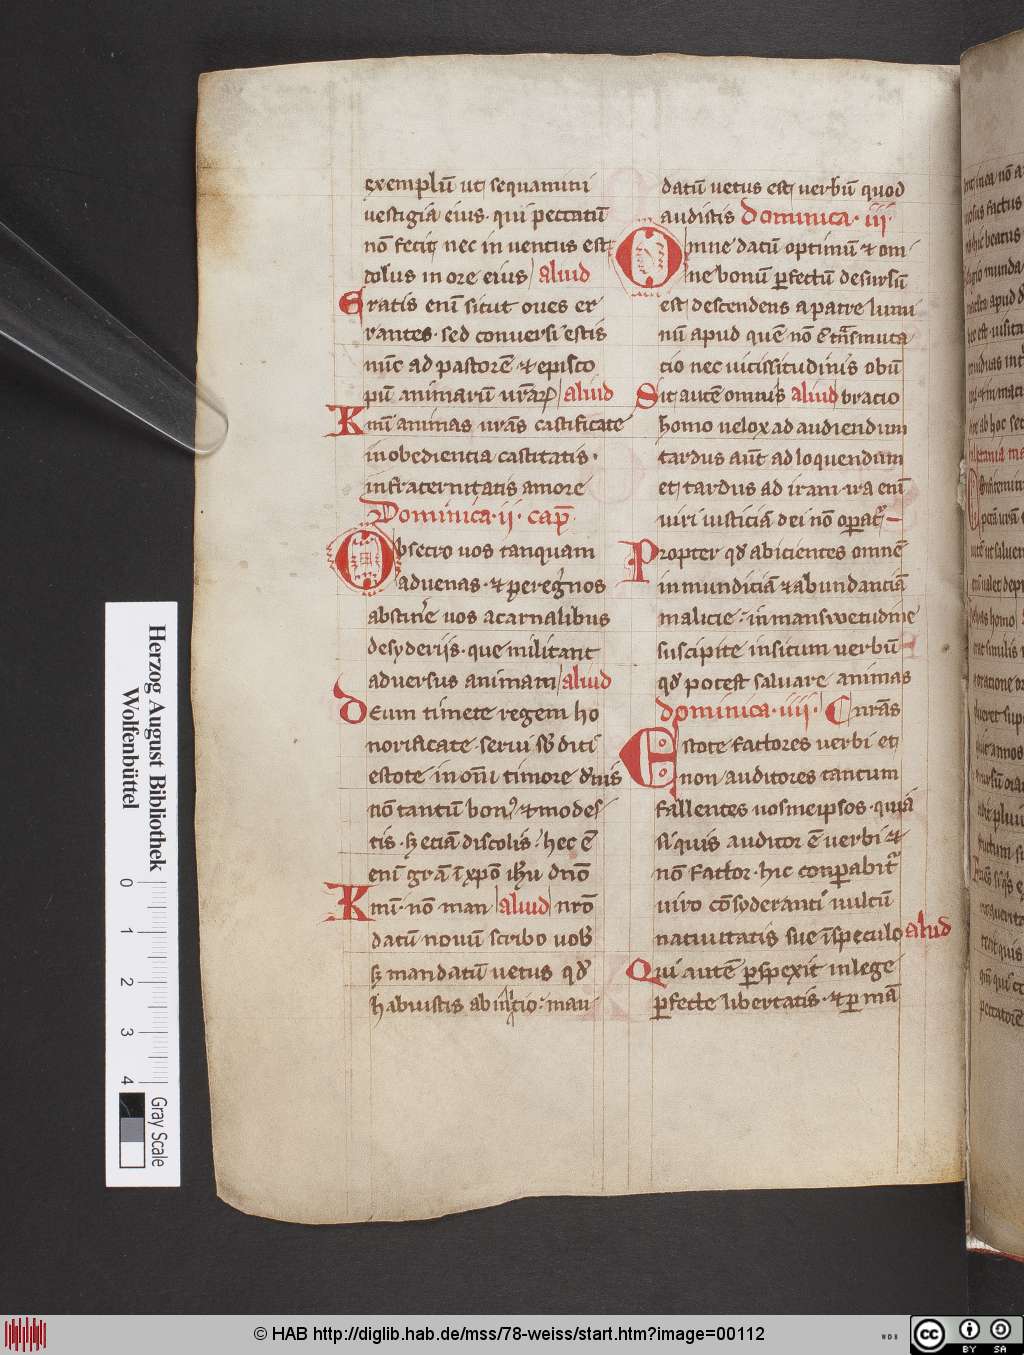 exemplū ut sequamini
vestigia eius· qui peccatū
nō fecit nec inventus est
dolus in ore eius aliud
Eratis enī sicut oves er
rantes· sed conversi estis
nūc ad pastorē et episco
pū animarū vr̄aꝝ aliud
Kmī animas vrās castificate
in obedientia castitatis·
in fraternitatis amore
Dominica· ii· cap̄
Obsecro vos tanquam
advenas· et peregͥnos
abstinēe vos a carnalibus
desyderijs· que militant
adversus animam aliud
Deum timete regem ho
norificate· servi sbͩditi
estote in om̄i timore dn̄is
nō tantū bonꝰ et modes
tis· sꝫ etiā discolis· hec ē
enī grā ī xp̄o ih̄u dn̄o
Kmī· nō man aliud nr̄o
datū novū scribo vob̄
sꝫ mandatū vetus qd̄
habuistis ab inicio· man
datū vetus est verbū quod
audistis Dominica· iii·
Omne datū optimū et om
ne bonū ꝑfectū desursū
est descendens a patre lumi
nū apud quē nō ē trāsmuta
cio nec vicissitudinis obū
Sit autē omnis aliud bracio
homo velox ad audiendum
tardus aūt ad loquendum
et tardus ad iram· ira enī
viri iusticiā dei nō oꝑatͬ
Propter qd̄ abicientes omnē
inmundiciā et abundanciā
malicie· in manswetudine
suscipite insitum verbū
qd̄ potest salvare animas
dominica· iiii· Cu͛rās
Estote factores verbi et
non auditores tantum
fallentes vosmeipsos· quia
si quis auditor ē verbi et
nō factor· hic conꝑabitͬ
viro cōsyderanti vultū
nativitatis sue ī speculo aliud
Qui autē ꝑspexit in lege
ꝑfecte libertatis· et ꝑmā
Herzog August Bibliothek
Wolfenbüttel
0 1 2 3 4
Gray Scale
© HAB http://diglib.hab.de/mss/78-weiss/start.htm?image=00112
WDB
cc BY SA